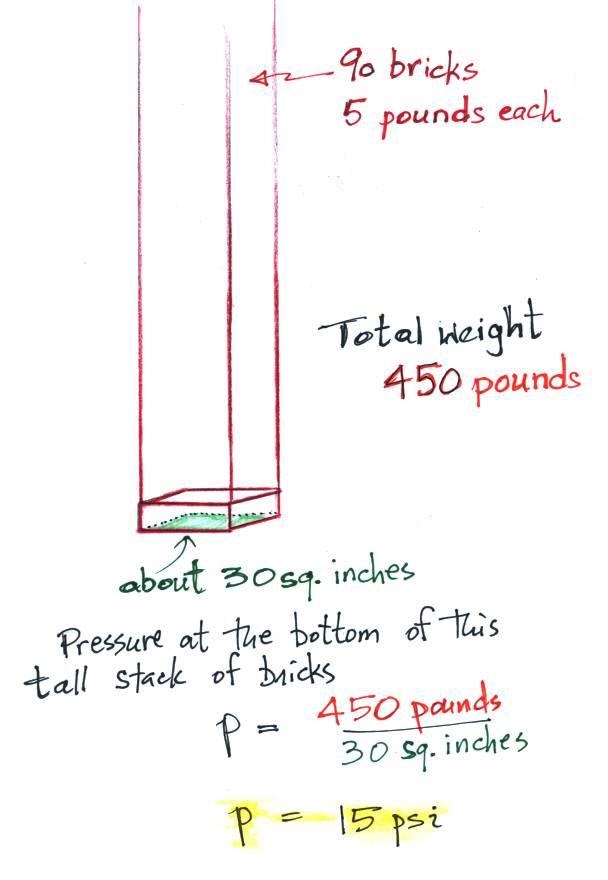 90 bricks
5 pounds each
Total weight
450 pounds
about 30 sq. inches
Pressure at the bottom of this
tall stack of bricks
P = 450 pounds
30 sq. inches
P = 15 psi